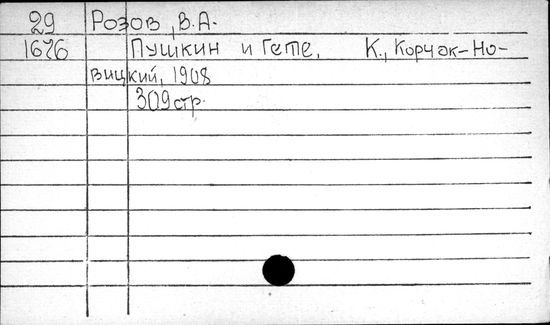 29 Розов, В.А.
1676 Пушкин и Гете, К., Корчак-Но-
вицкий, 1908
309 стр.